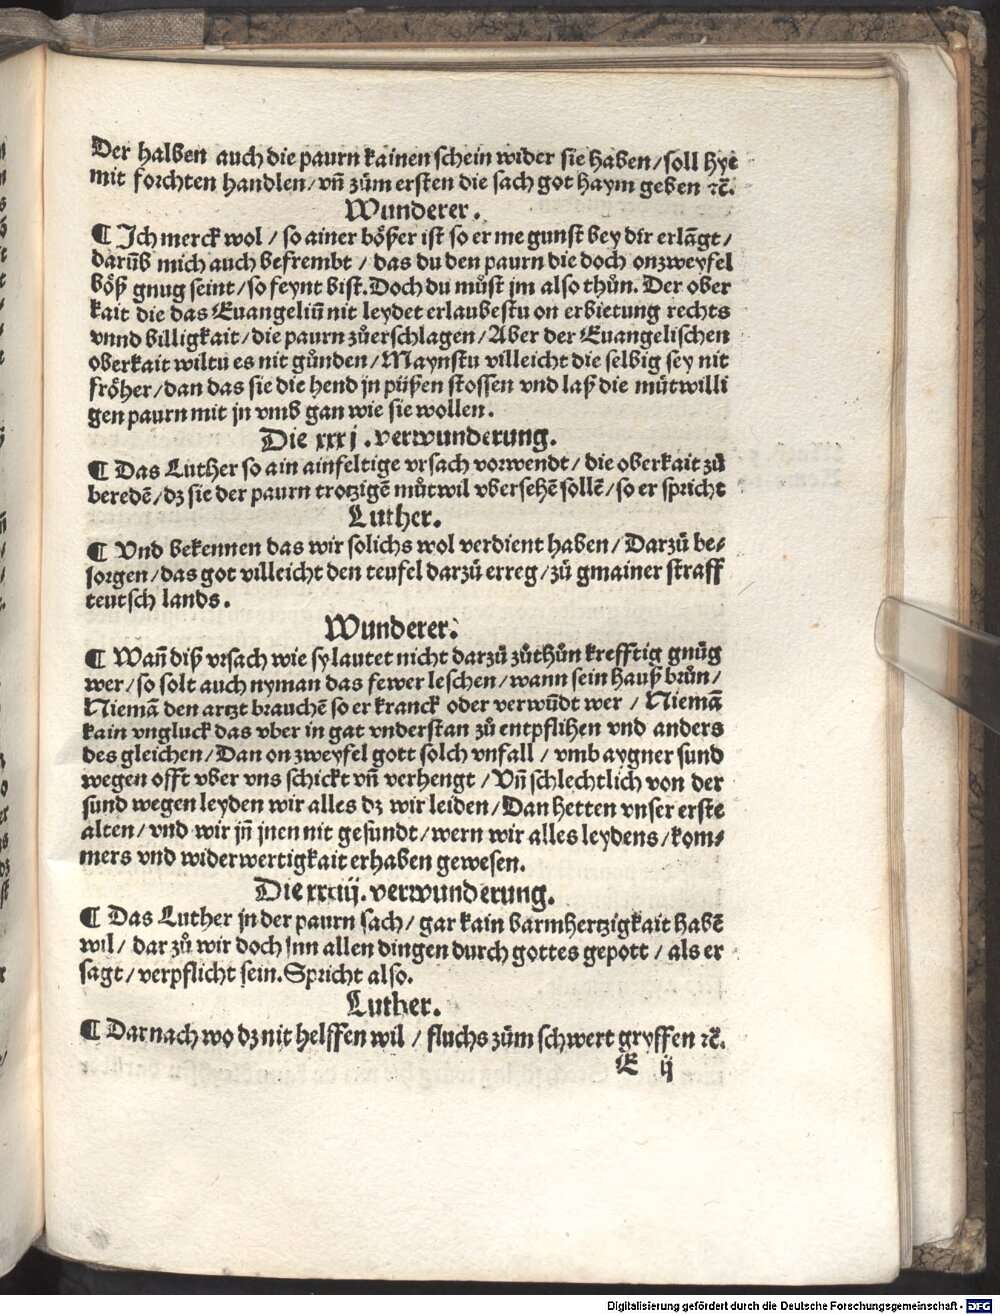 Der halben auch die paurn kainen schein wider sie haben/soll hye
mit forchten handlen/vñ zům ersten die sach got haym geben ⁊c̃.
Wunderer.
¶ Jch merck wol / so ainer bößer ist so er me gunst bey dir erlãgt/
darũb mich auch befrembt / das du den paurn die doch onzweyfel
böß gnug seint/so feynt bist.Doch du můst jm also thůn. Der ober
kait die das Euangeliũ nit leydet erlaubestu on erbietung rechts
vnnd billigkait/die paurn zůerschlagen/Aber der Euangelischen
oberkait wiltu es nit gůnden/Maynstu villeicht die selbig sey nit
fröher/dan das sie die hend jn püßen stossen vnd laß die můtwilli
gen paurn mit jn vmb gan wie sie wollen.
Die xxxj.verwunderung.
¶ Das Luther so ain ainfeltige vrsach vorwendt/die oberkait zů
beredẽ/dꝫ sie der paurn trotzigẽ můtwil vbersehẽ sollẽ/so er spricht
Luther.
¶ Vnd bekennen das wir solichs wol verdient haben/Darzů be⸗
sorgen/das got villeicht den teufel darzů erreg/zů gmainer straff
teutsch lands.
Wunderer.
¶ Wañ diß vrsach wie sy lautet nicht darzů zůthůn krefftig gnůg
wer/so solt auch nyman das fewer leschen/wann sein hauß brůn/
Niemã den artzt brauchẽ so er kranck oder verwũdt wer / Niemã
kain vngluck das vber in gat vnderstan zů entpflihen vnd anders
des gleichen/Dan on zweyfel gott solch vnfall / vmb aygner sund
wegen offt vber vns schickt vñ verhengt /Vñ schlechtlich von der
sund wegen leyden wir alles dꝫ wir leiden/Dan hetten vnser erste
alten/vnd wir jñ jnen nit gesundt/wern wir alles leydens/kom⸗
mers vnd widerwertigkait erhaben gewesen.
Die xxxiij.verwunderung.
¶ Das Luther jn der paurn sach/ gar kain barmhertzigkait habẽ
wil/ dar zů wir doch jnn allen dingen durch gottes gepott / als er
sagt/verpflicht sein.Spricht also.
Luther.
¶ Darnach wo dꝫ nit helffen wil / fluchs zům schwert gryffen ⁊c̃.
E ij
Digitalisierung gefördert durch die Deutsche Forschungsgemeinschaft - DFG